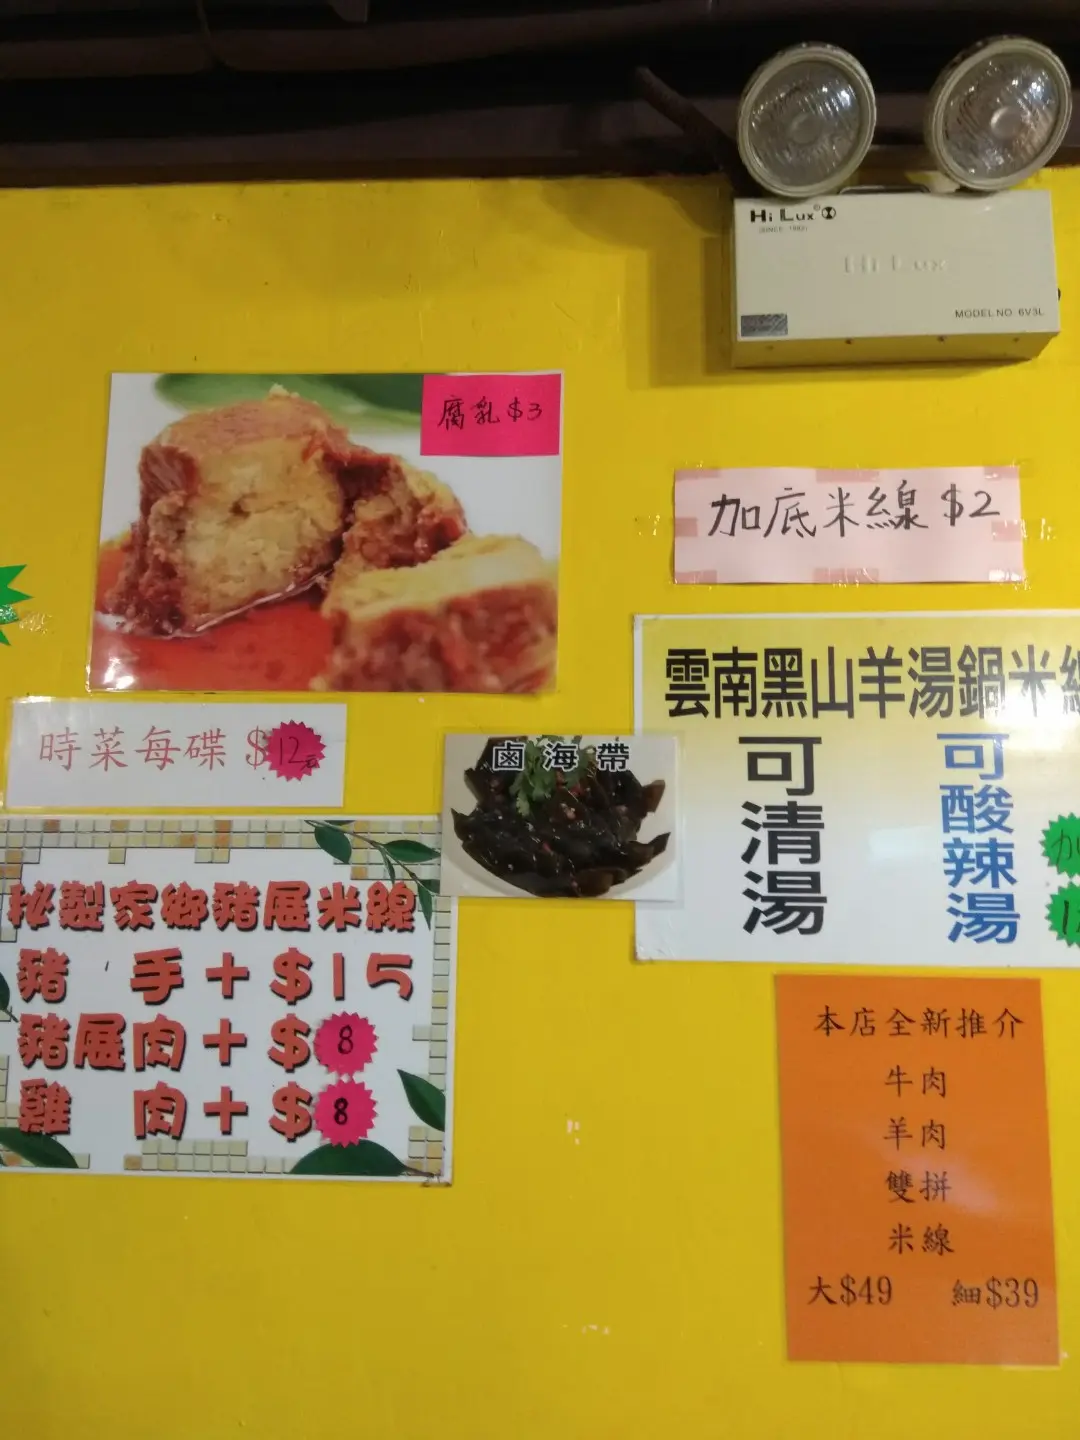 Hi Lux
(SINCE 1982)
Hi Lux
MODEL NO. 6V3L
腐乳$3
加底米線$2
雲南黑山羊湯鍋米線
可清湯
可酸辣湯
加
時菜每碟 $12
鹵海帶
秘製家鄉豬展米線
豬 手+$15
豬展肉+$8
雞 肉+$8
本店全新推介
牛肉
羊肉
雙拼
米線
大$49 細$39